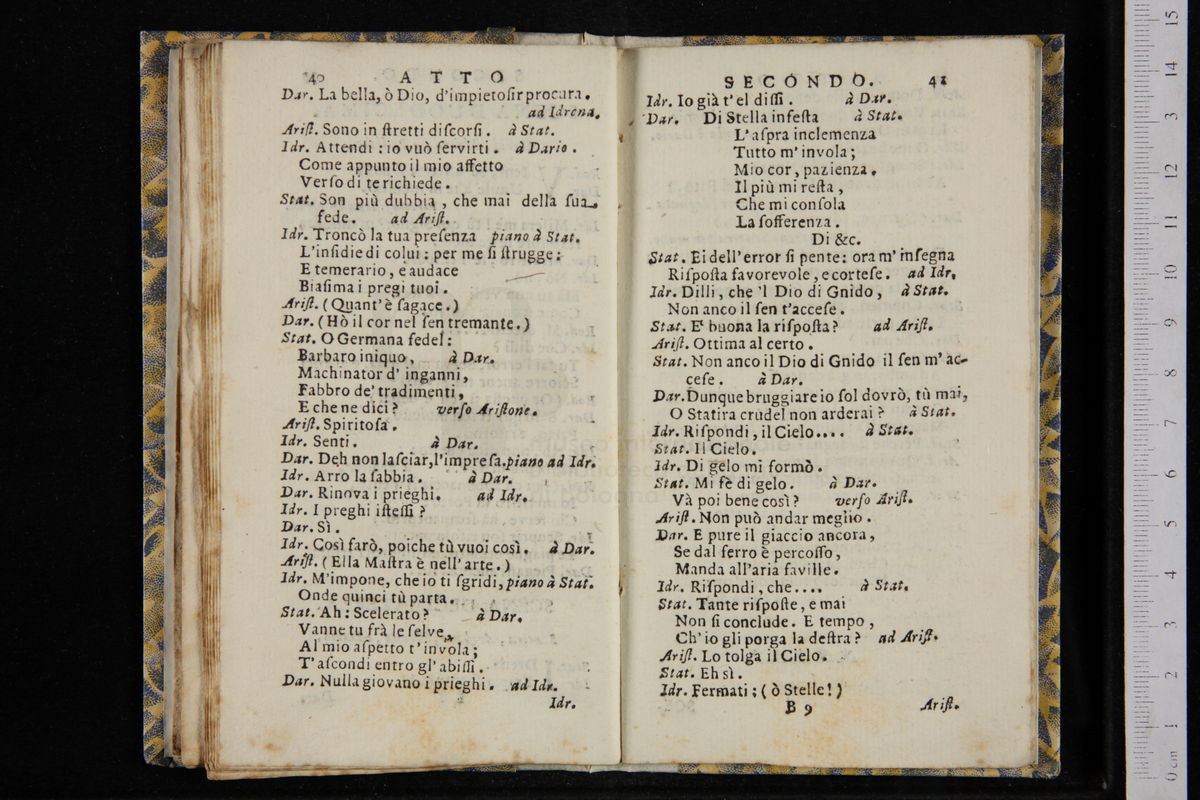 40 ATTO
Dar. La bella, ò Dio, d'impietoſir procura.
ad Idrena.
Ariſt. Sono in ſtretti diſcorſi. à Stat.
Idr. Attendi : io vuò ſervirti. à Dario.
Come appunto il mio affetto
Verſo di te richiede.
Stat. Son più dubbia, che mai della ſua
fede. ad Ariſt.
Idr. Troncò la tua preſenza piano à Stat.
L'inſidie di colui : per me ſi ſtrugge :
E temerario, e audace
Biaſima i pregi tuoi.
Ariſt. (Quant'è ſagace.)
Dar. (Hò il cor nel ſen tremante.)
Stat. O Germana fedel :
Barbaro iniquo, à Dar.
Machinator d' inganni,
Fabbro de' tradimenti,
E che ne dici ? verſo Ariſtone.
Ariſt. Spiritoſa.
Idr. Senti. à Dar.
Dar. Deh non laſciar, l'impreſa. piano ad Idr.
Idr. Arro la ſabbia. à Dar.
Dar. Rinova i prieghi. ad Idr.
Idr. I preghi iſteſſi ?
Dar. Sì.
Idr. Così farò, poiche tù vuoi così. à Dar.
Ariſt. ( Ella Maſtra è nell' arte.)
Idr. M'impone, che io ti ſgridi, piano à Stat.
Onde quinci tù parta.
Stat. Ah : Scelerato ? à Dar.
Vanne tu frà le ſelve,
Al mio aſpetto t' invola ;
T' aſcondi entro gl' abiſſi.
Dar. Nulla giovano i prieghi. ad Idr.
Idr.
SECONDO. 41
Idr. Io già t' el diſſi. à Dar.
Dar. Di Stella infeſta à Stat.
L'aſpra inclemenza
Tutto m' invola ;
Mio cor, pazienza.
Il più mi reſta,
Che mi conſola
La ſofferenza.
Di &c.
Stat. Ei dell' error ſi pente : ora m' inſegna
Riſpoſta favorevole, e corteſe. ad Idr.
Idr. Dilli, che 'l Dio di Gnido, à Stat.
Non anco il ſen t'acceſe.
Stat. E' buona la riſpoſta ? ad Ariſt.
Ariſt. Ottima al certo.
Stat. Non anco il Dio di Gnido il ſen m' ac-
ceſe. à Dar.
Dar. Dunque bruggiare io ſol dovrò, tù mai,
O Statira crudel non arderai ? à Stat.
Idr. Riſpondi, il Cielo.... à Stat.
Stat. Il Cielo.
Idr. Di gelo mi formò.
Stat. Mi fè di gelo. à Dar.
Và poi bene così ? verſo Ariſt.
Ariſt. Non può andar meglio.
Dar. E pure il giaccio ancora,
Se dal ferro è percoſſo,
Manda all'aria faville.
Idr. Riſpondi, che.... à Stat.
Stat. Tante riſpoſte, e mai
Non ſi conclude. E tempo,
Ch' io gli porga la deſtra ? ad Ariſt.
Ariſt. Lo tolga il Cielo.
Stat. Eh sì.
Idr. Fermati ; ( ò Stelle ! )
B 9 Ariſt.
0 cm 1 2 3 4 5 6 7 8 9 10 11 12 13 14 15